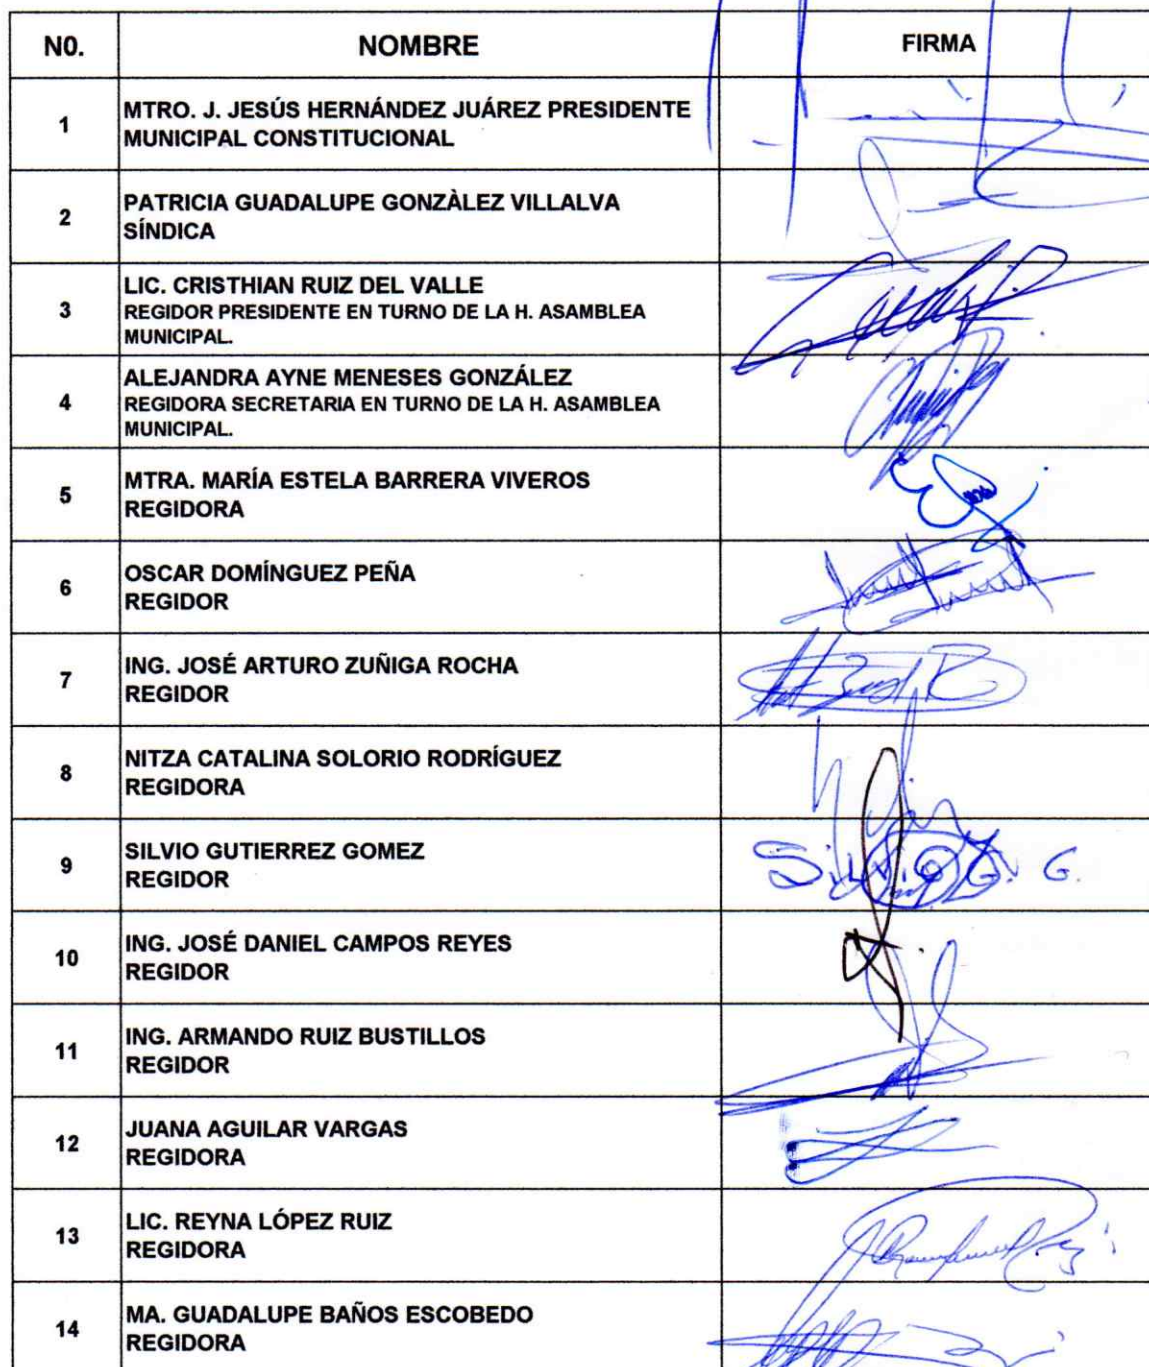 N0. NOMBRE FIRMA
1 MTRO. J. JESÚS HERNÁNDEZ JUÁREZ PRESIDENTE
MUNICIPAL CONSTITUCIONAL
2 PATRICIA GUADALUPE GONZÀLEZ VILLALVA
SÍNDICA
3 LIC. CRISTHIAN RUIZ DEL VALLE
REGIDOR PRESIDENTE EN TURNO DE LA H. ASAMBLEA
MUNICIPAL.
4 ALEJANDRA AYNE MENESES GONZÁLEZ
REGIDORA SECRETARIA EN TURNO DE LA H. ASAMBLEA
MUNICIPAL.
5 MTRA. MARÍA ESTELA BARRERA VIVEROS
REGIDORA
6 OSCAR DOMÍNGUEZ PEÑA
REGIDOR
7 ING. JOSÉ ARTURO ZUÑIGA ROCHA
REGIDOR
8 NITZA CATALINA SOLORIO RODRÍGUEZ
REGIDORA
9 SILVIO GUTIERREZ GOMEZ Silvio G. G.
REGIDOR
10 ING. JOSÉ DANIEL CAMPOS REYES
REGIDOR
11 ING. ARMANDO RUIZ BUSTILLOS
REGIDOR
12 JUANA AGUILAR VARGAS
REGIDORA
13 LIC. REYNA LÓPEZ RUIZ
REGIDORA
14 MA. GUADALUPE BAÑOS ESCOBEDO
REGIDORA